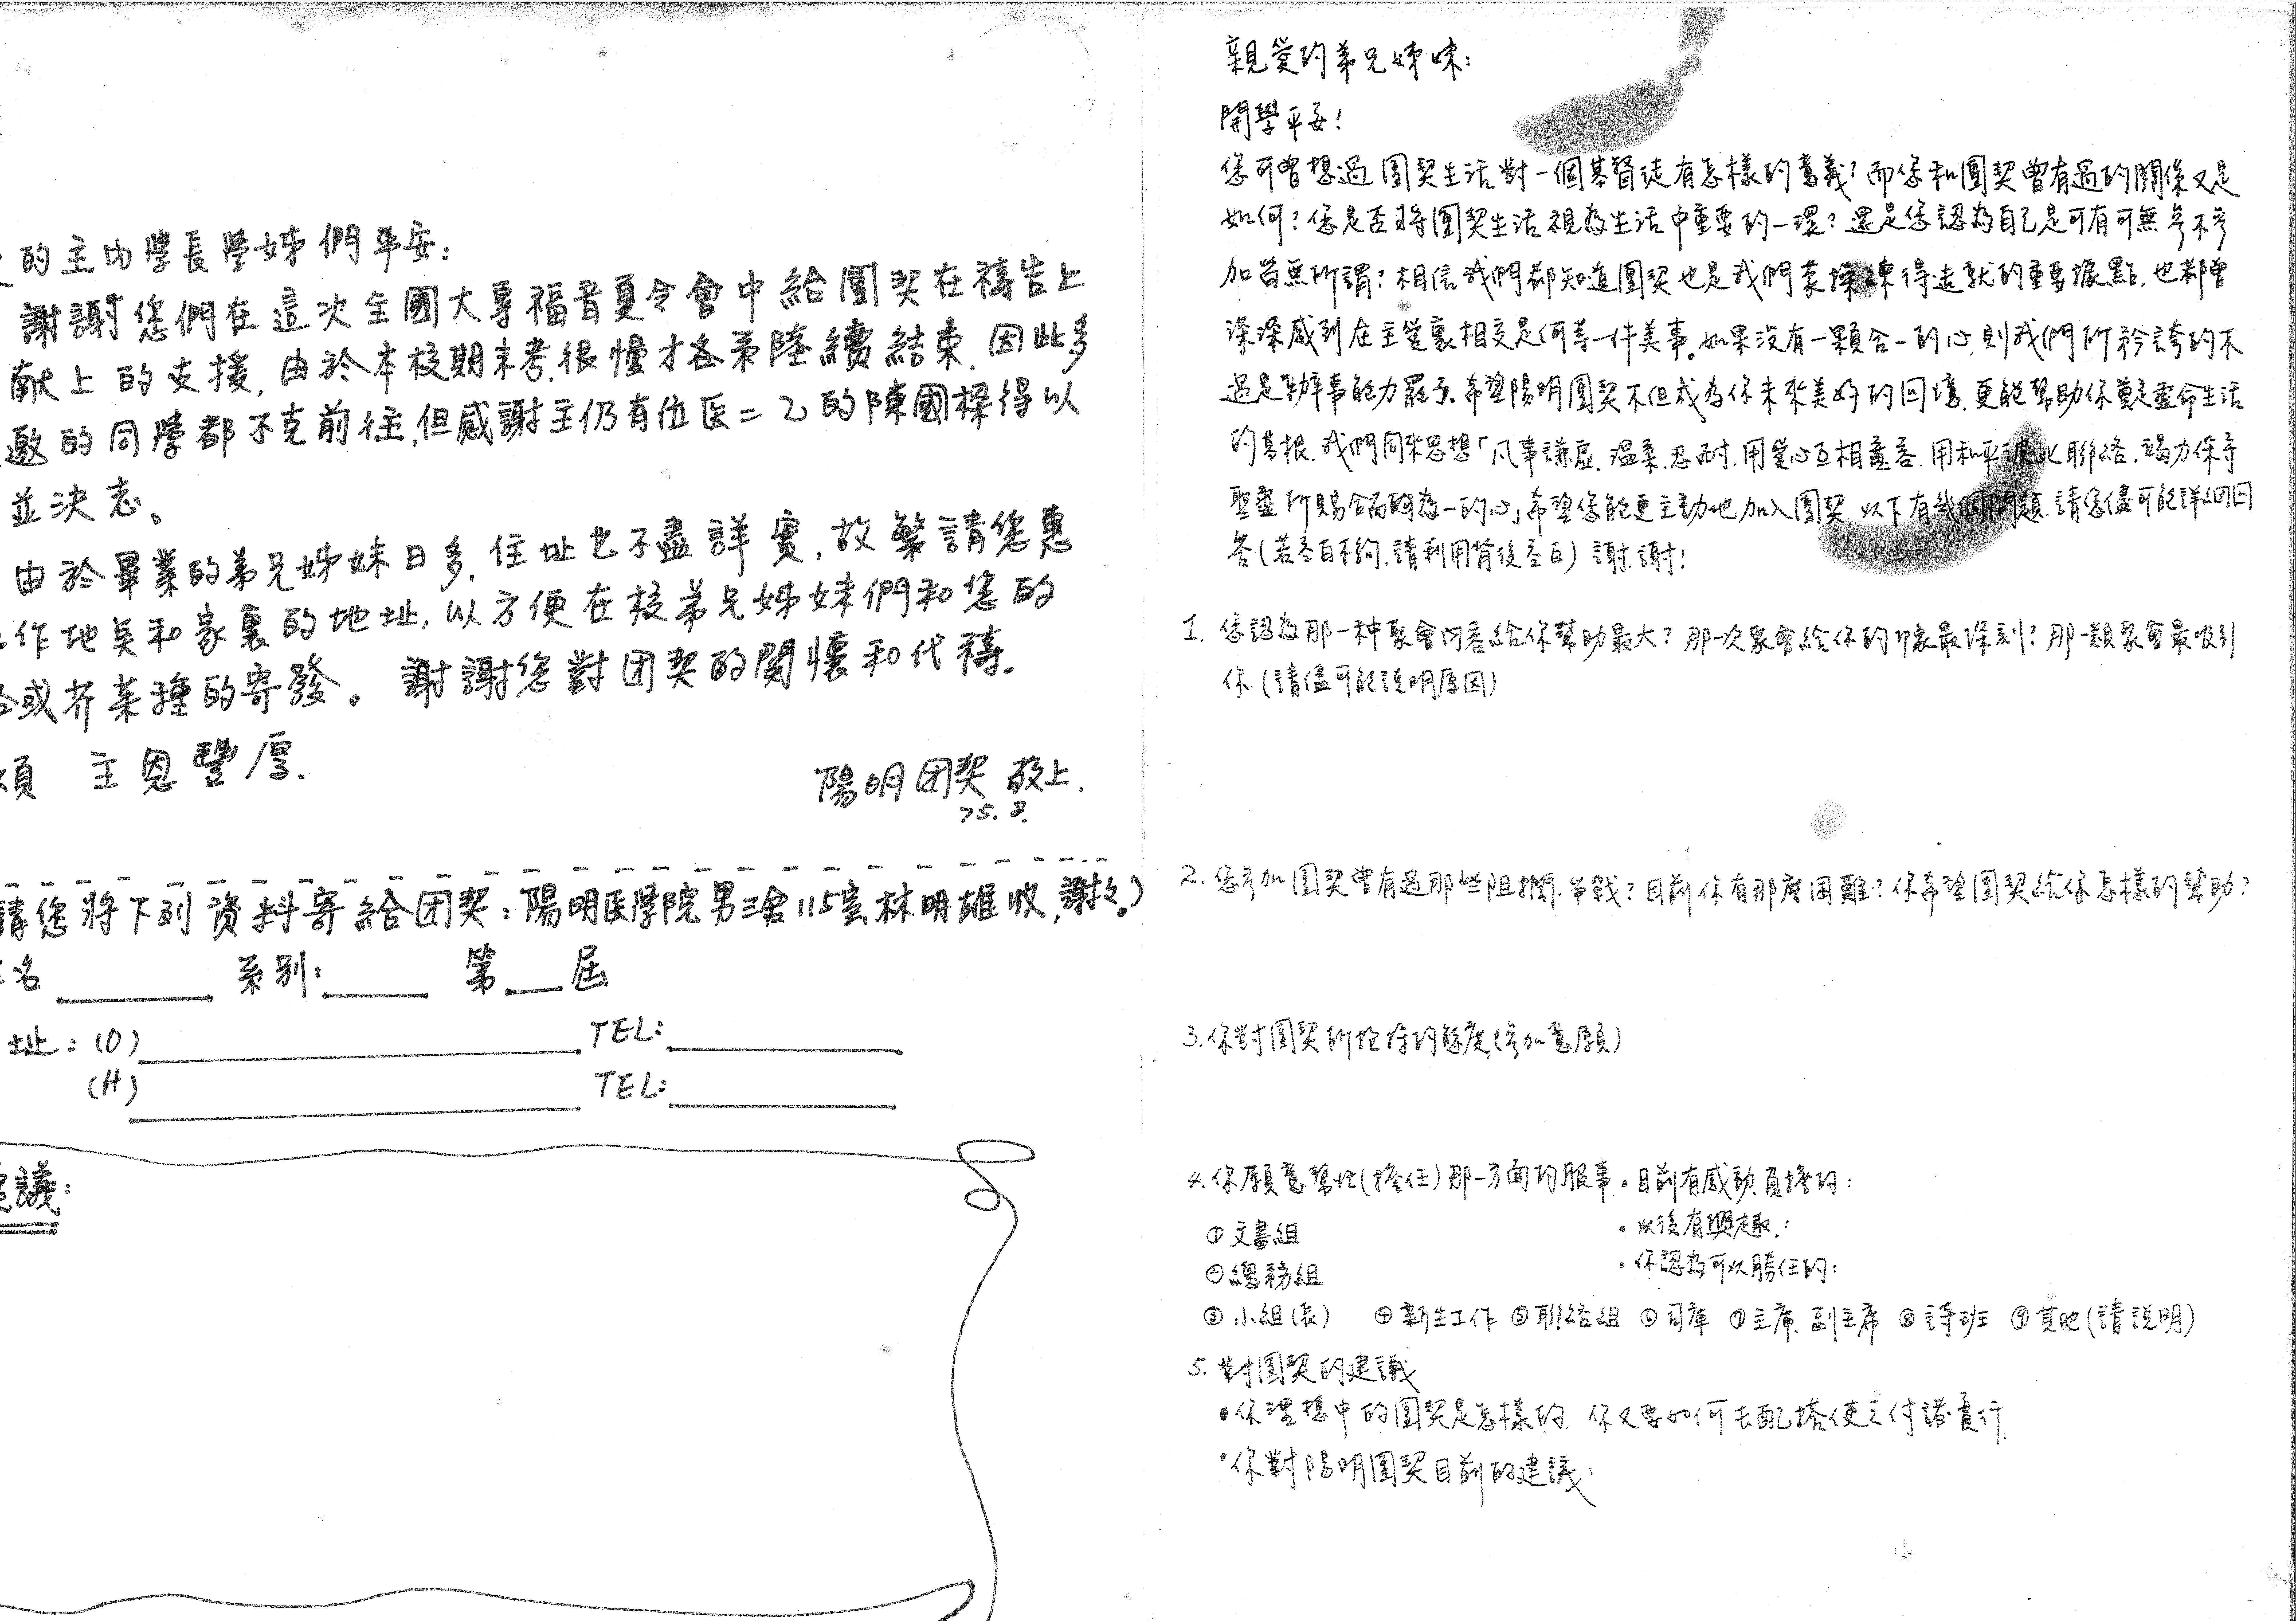 的主內學長學姊們平安:
謝謝您們在這次全國大專福音夏令會中給團契在禱告上
獻上的支援,由於本校期末考,很慢才各系陸續結束.因此多
邀的同學都不克前往,但感謝主仍有位医二乙的陳國樑得以
並決志。
由於畢業的弟兄姊妹日多,住址也不盡詳實,故繁請您惠
作地點和家裏的地址,以方便在校弟兄姊妹們和您的
或芥菜種的寄發。謝謝您對团契的関懷和代禱。
頌 主恩豐厚.
陽明团契 敬上.
75.8.
請您將下列資料寄給团契:陽明医学院男三舍115室林明雄收,謝々。)
名 系別: 第 屆
址:(O) TEL:
(H) TEL:
議:
親愛的弟兄姊妹:
開學平安!
您可曾想過團契生活對一個基督徒有怎樣的意義?而您和團契曾有過的關係又是
如何?您是否將團契生活視為生活中重要的一環?還是您認為自己是可有可無參不參
加皆無所謂?相信我們都知道團契也是我們蒙操練得造就的重要據點,也都曾
深深感到在主愛裏相交是何等一件美事。如果沒有一顆合一的心,則我們所矜誇的不
過是辦事能力罷了。希望陽明團契不但成為你未來美好的回憶,更能幫助你奠定靈命生活
的基根.我們同來思想「凡事謙虛.溫柔.忍耐.用愛心互相寬容.用和平彼此聯絡.竭力保守
聖靈所賜合而為一的心」希望您能更主動地加入團契.以下有幾個問題.請您儘可能詳細回
答(若空白不夠.請利用背後空白)謝.謝!
1. 您認為那一種聚會內容給你幫助最大?那一次聚會給你的印象最深刻?那一類聚會最吸引
你(請儘可能說明原因)
2. 您參加團契曾有過那些阻攔.爭戰?目前你有那麼困難?你希望團契給你怎樣的幫助?
3.你對團契所抱持的態度(參加意願)
4.你願意幫忙(擔任)那一方面的服事.目前有感動負擔的:
①文書組 ・以後有興趣:
②總務組 ・你認為可以勝任的:
③小組(長) ④新生工作 ⑤聯絡組 ⑥司庫 ⑦主席.副主席 ⑧詩班 ⑨其他(請說明)
5. 對團契的建議
・你理想中的團契是怎樣的.你又要如何去配搭使之付諸實行.
・你對陽明團契目前的建議: